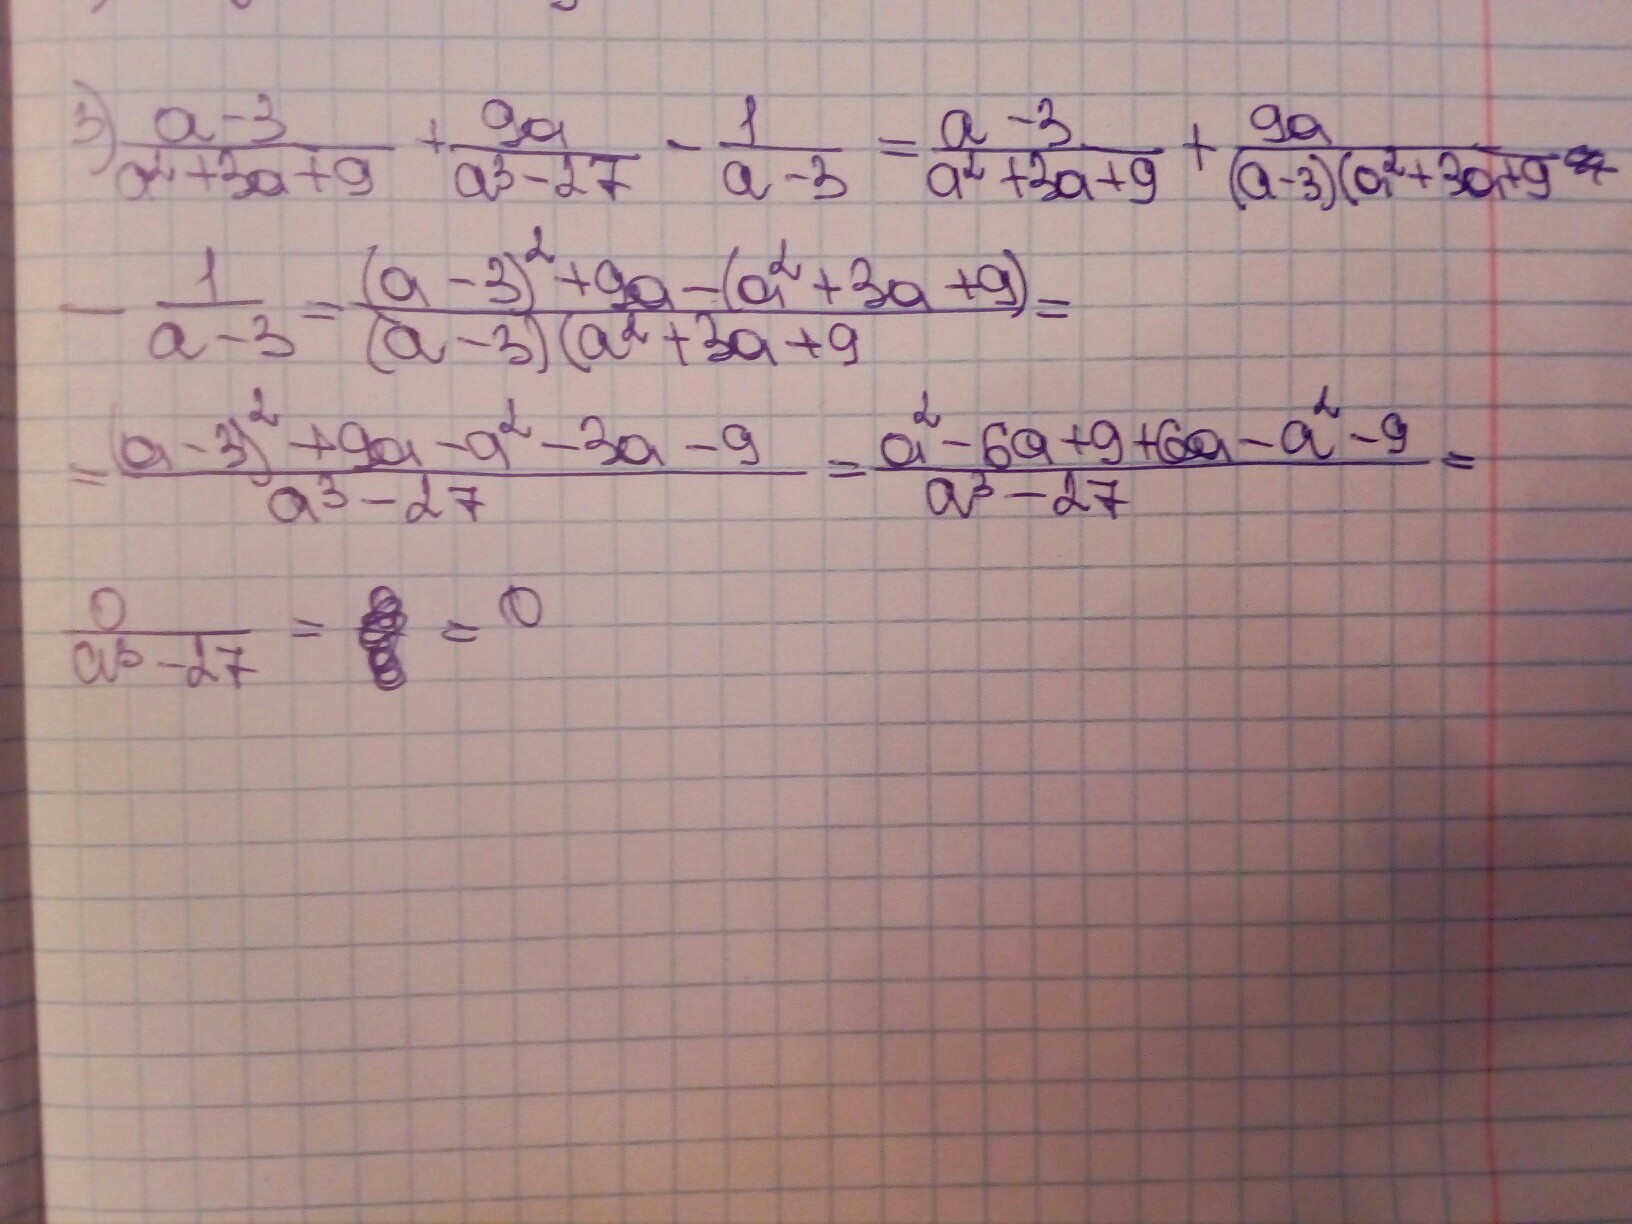 3) (a-3)/(a²+3a+9) + 9a/(a³-27) - 1/(a-3) = (a-3)/(a²+3a+9) + 9a/((a-3)(a²+3a+9
- 1/(a-3) = ((a-3)²+9a-(a²+3a+9))/((a-3)(a²+3a+9 =
= ((a-3)²+9a-a²-3a-9)/(a³-27) = (a²-6a+9+6a-a²-9)/(a³-27) =
0/(a³-27) = = 0